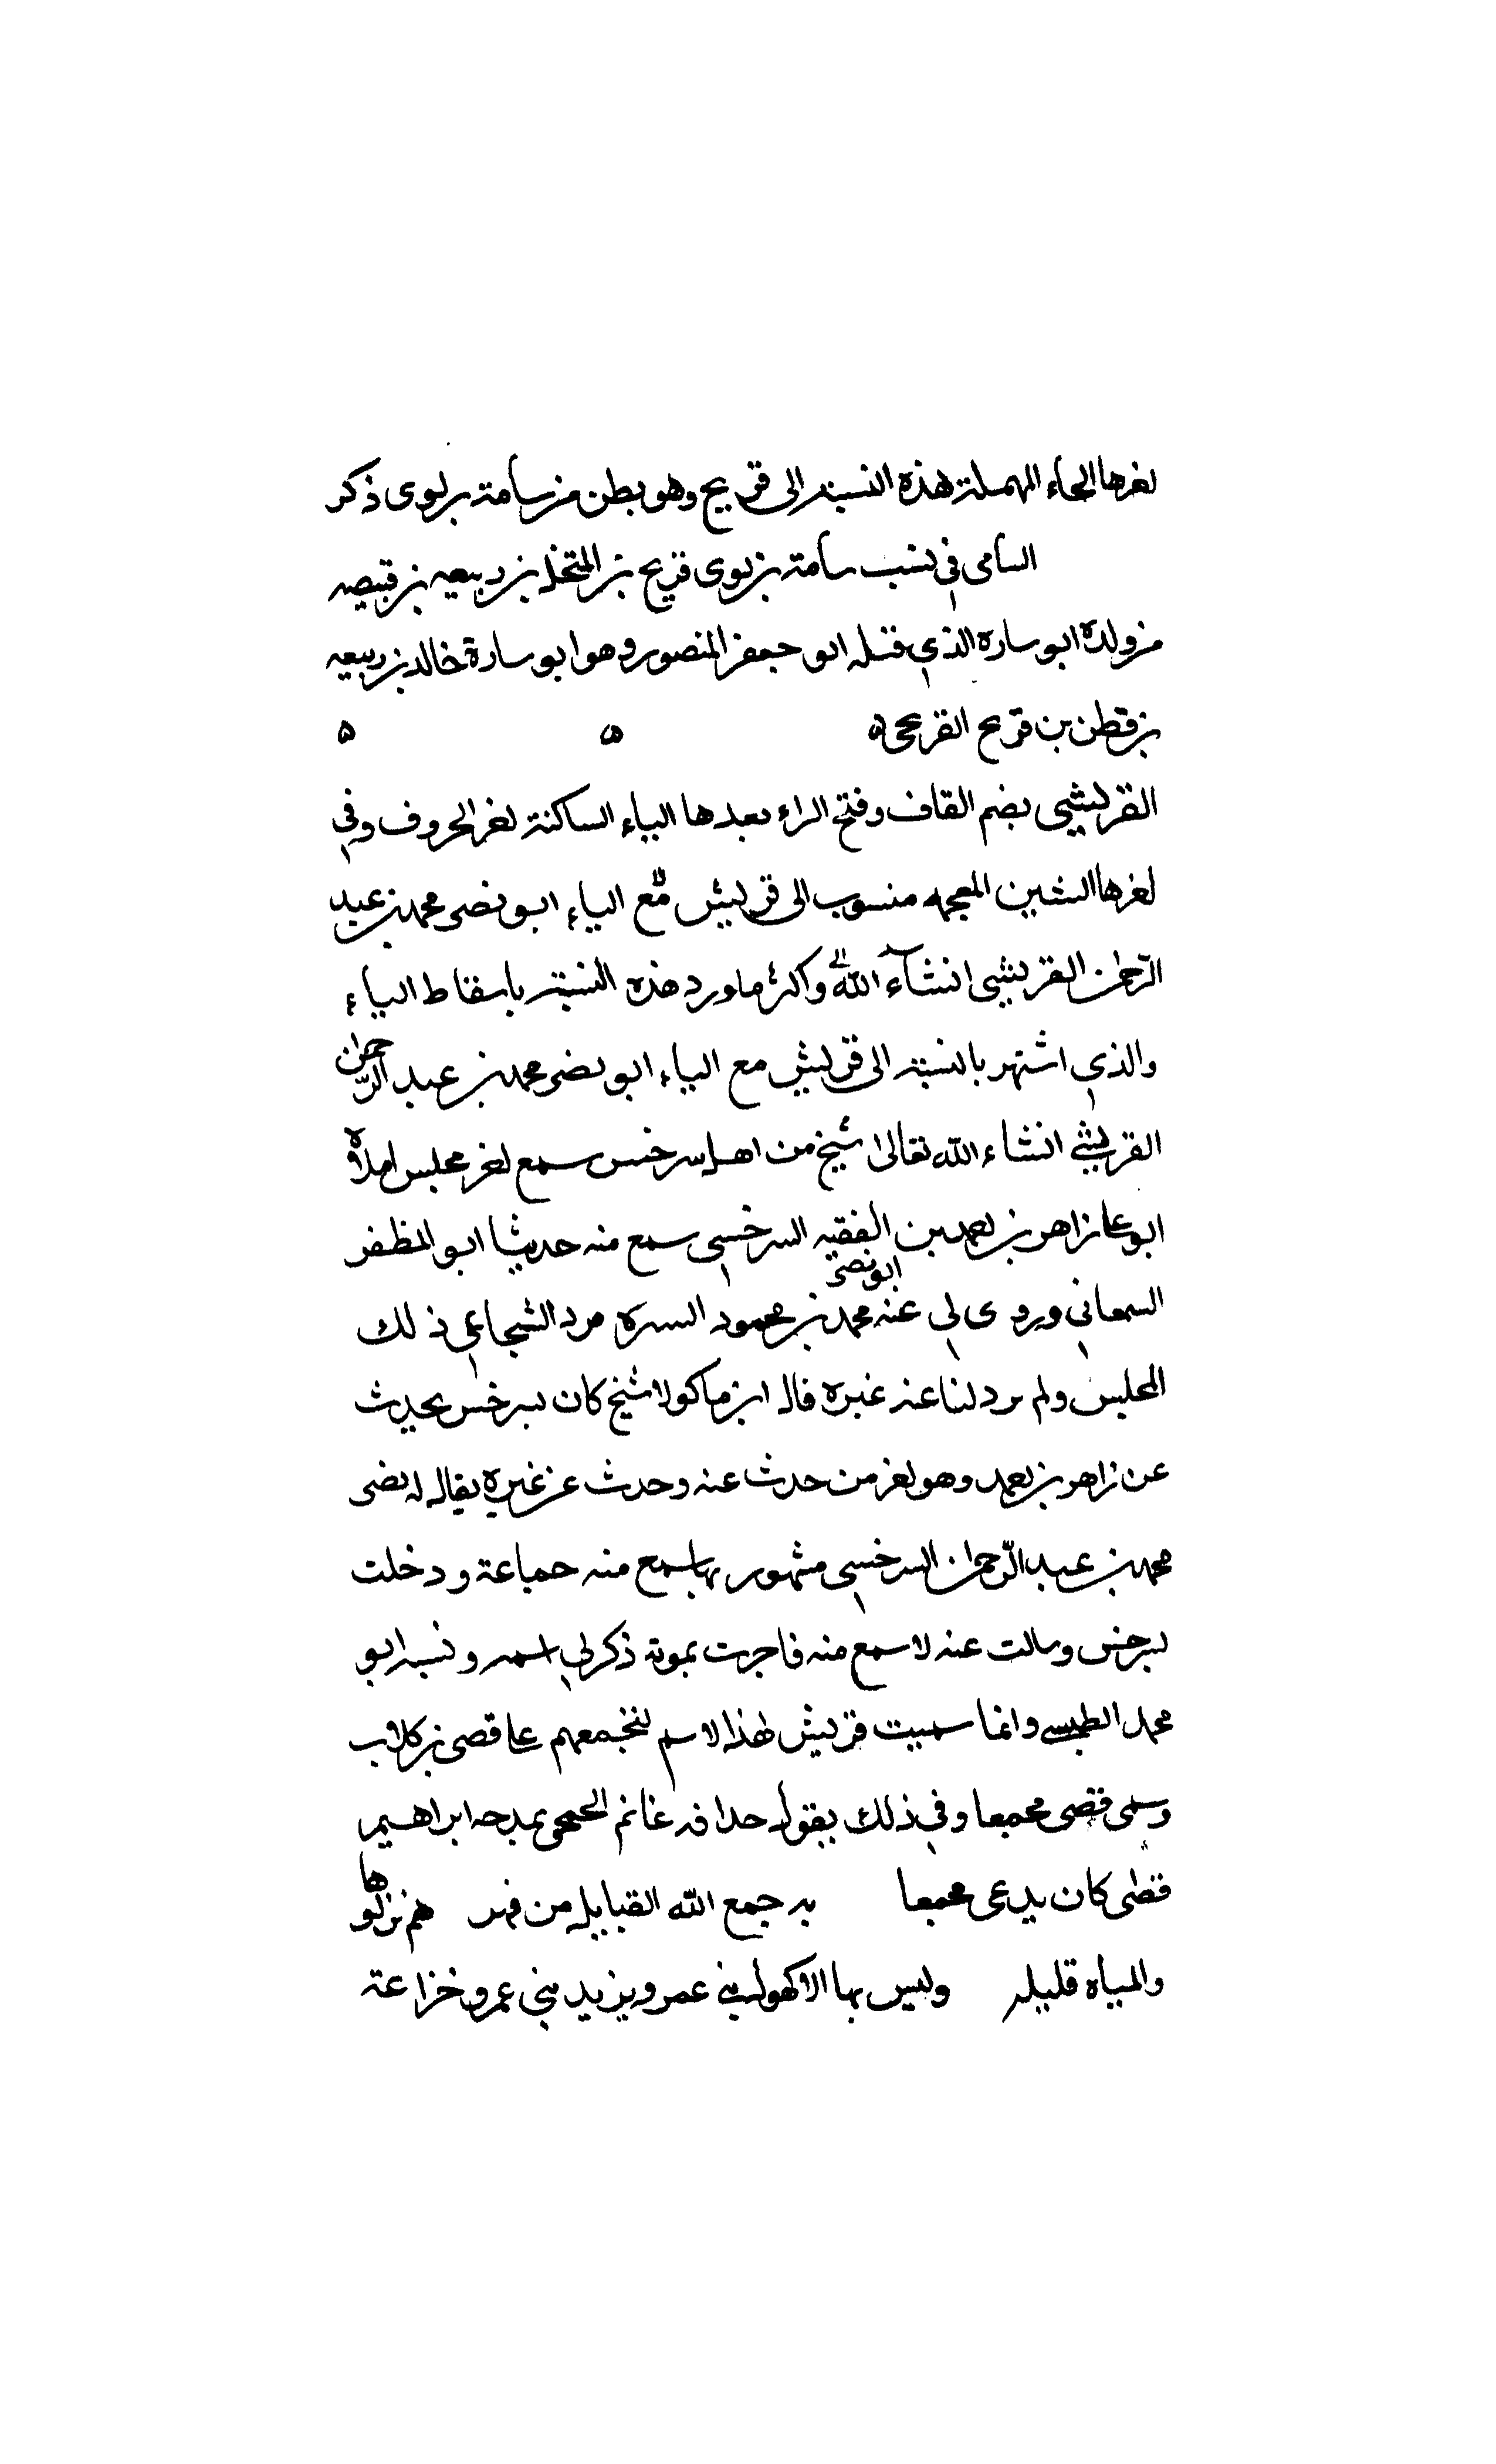 لغرها الحاء المهملة هذه النسبة الى قريح وهو بطن من سامة بن لوى ذكر
السامى في نسب سامة بن لوى قريح بن المتخل بن ربيعه بن قبيصه
من ولده ابو ساره الذي قتله ابو جعفر المنصور وهو ابو سارة خالد بن ربيعه
بن قطن بن قريح القريحى ه ه ه
القريشي بضم القاف وفتح الراء بعدها الياء الساكنة لغر الحروف وفي
لغرها الشين المعجمه منسوب الى قريش مع الياء ابو نصر محمد بن عبد
الرحمن القريشي انشآء الله واكثر ما ورد هذه النسبة باسقاط الياء
والذي اشتهر بالنسبة الى قريش مع الياء ابو نصر محمد بن عبد الرحمن
القريشي انشاء الله تعالى شيخ من اهل سرخس سمع لغر مجلس املاه
ابو على زاهر بن لعمد بن الفقيه السرخسي سمع منه حديثا ابو المظفر
السمعاني وروى لي عنه ابو نصر محمد بن محمود السره مرد الشجاعي ذلك
المجلس ولم يرد لنا عنه غيره قال ابن ماكولا شيخ كان بسرخس يحدث
عن زاهر بن لعمد وهو لغر من حدث عنه وحدث عن غيره يقال له نصر
محمد بن عبد الرحمن السرخسي مشهور بها سمع منه جماعة ودخلت
سرخس وسالت عنه لاسمع منه فاجرت بموته ذكر لي اسمه ونسبه ابو
محمد الطبسي وانما سميت قريش لهذا الاسم لتجمعهم على قصى بن كلاب
وسمى قصى مجمعا وفي ذلك يقول حذافه غانم الجمحى يمدحه ابراهيم
قصى كان يدعى مجمعا به جمع الله القبايل من فهر هم نزلوها
والمياه قليله وليس بها الا كهول بني عمرو يزيد بني عمرو خزاعة